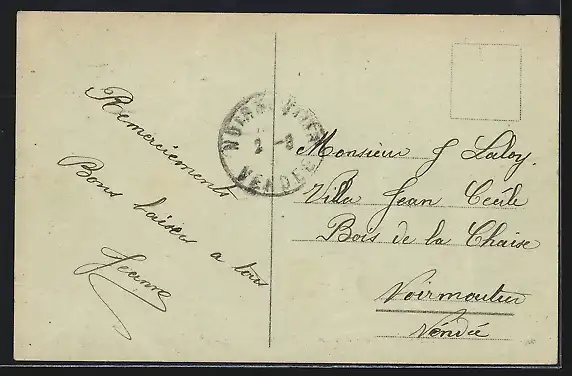 Remerciements
Bons baisers a tous
Jeanne
NOIRMOUTIER
2 -8
VENDEE
Monsieur J Laloy.
Villa Jean Cecile
Bois de la Chaise
Noirmoutier
Vendée